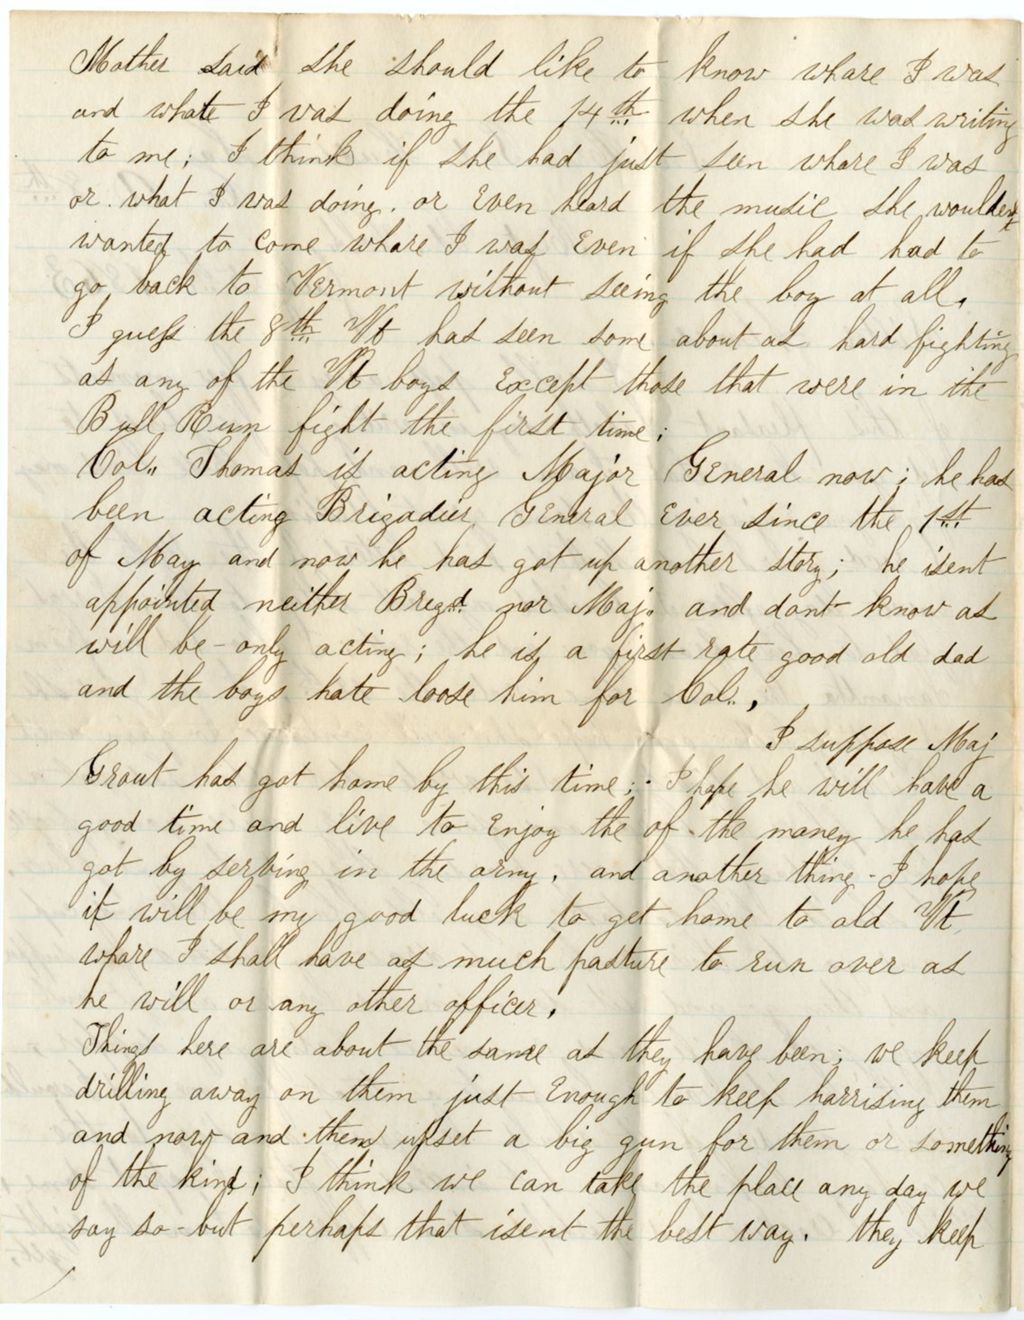 Mother said she should like to know whare I was
and whate I was doing the 14th when she was writing
to me; I think if she had just seen whare I was
or what I was doing. or Even heard the music she wouldent
wanted to come whare I was Even if she had had to
go back to Vermont without seeing the boy at all.
I guess the 8th Vt has seen some about as hard fighting
as any of the Vt boys Except those that were in the
Bull Run fight the first time;
Col,, Thomas is acting Major General now; he has
been acting Brigadier General Ever since the 1st
of May and now he has got up another story; he isent
appointed neither Bregd. nor Maj. and dont know as
will be - only acting; he is a first rate good old dad
and the boys hate loose him for Col..,
I suppose Maj
Grout has got home by this time; I hope he will have a
good time and live to Enjoy the of the money he has
got by serving in the army. and another thing - I hope
it will be my good luck to get home to old Vt
whare I shall have as much pasture to run over as
he will or any other officer.
Things here are about the same as they have been; we keep
drilling away on them just Enough to keep harrising them
and now and them upset a big gun for them or something
of the kind; I think we can take the place any day we
say so - but perhaps that isent the best way. they keep